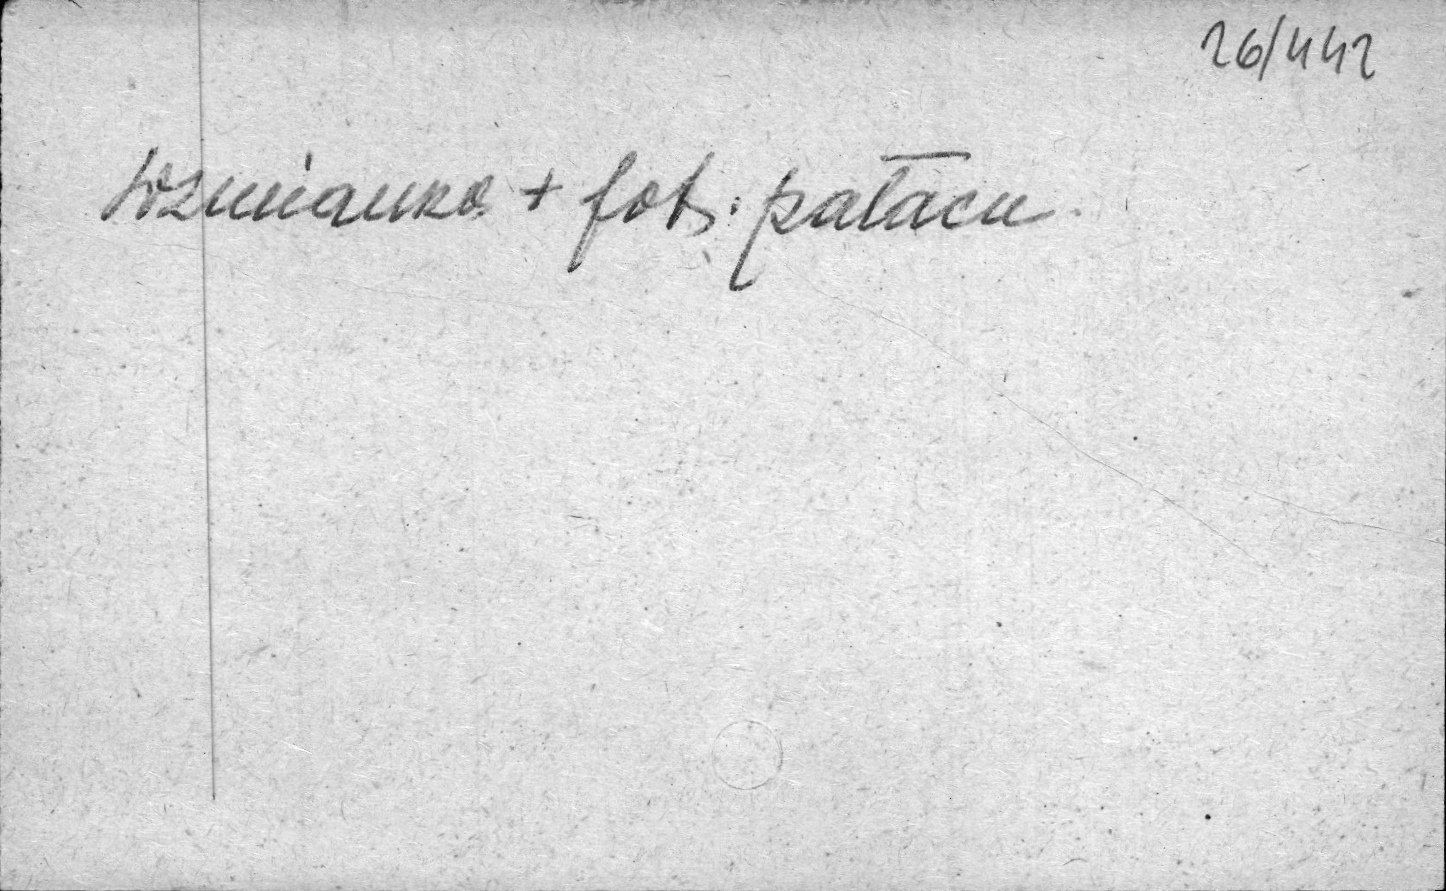 26/442
wzmianka + fot. pałacu